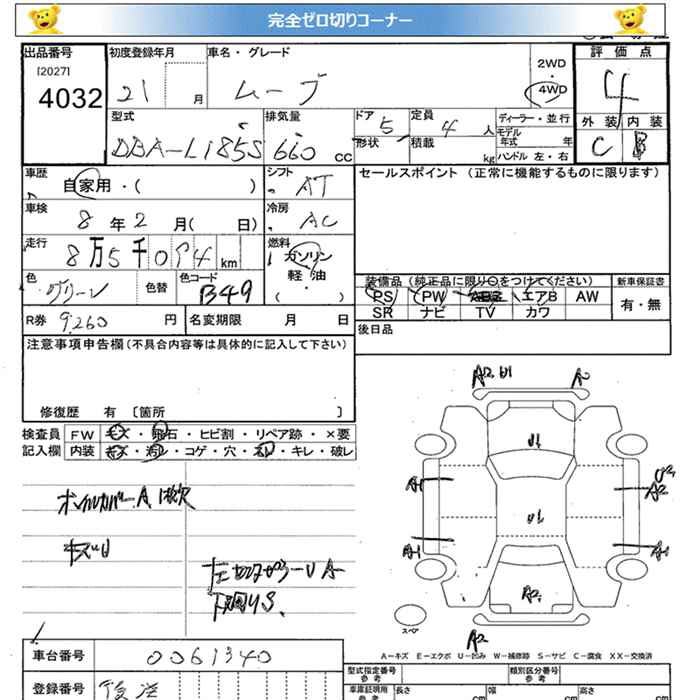 完全ゼロ切りコーナー
出品番号
[2027]
4032
初度登録年月
21 月
車名・グレード
ムーブ
2WD
・
4WD
評価点
4
外装 内装
C B
型式
DBA-L185S
排気量
660 cc
ドア
5
形状
定員
4 人
積載
kg
ディーラー・並行
モデル
年式 年
ハンドル 左・右
車歴
自家用・( )
シフト
AT
セールスポイント (正常に機能するものに限ります)
車検
8 年 2 月( 日)
冷房
AC
走行
8万5千094 km
燃料
ガソリン
軽・油
( )
色
グリーン
色替
色コード
B49
装備品 (純正品に限り○をつけてください)
PS PW ABS エアB AW
SR ナビ TV カワ
新車保証書
有・無
R券 9,260 円
名変期限 月 日
後日品
注意事項申告欄(不具合内容等は具体的に記入して下さい)
修復歴 有 〔箇所 〕
検査員
記入欄
FW キズ・飛石・ヒビ割・リペア跡・×要
内装 キズ・汚レ・コゲ・穴・スレ・キレ・破レ
オイルカバーA
キズU
A2 U1 A
U1
A1
U2
A2
U1
A1
A1
A2
A2
スペア
A-キズ E-エクボ U-凹み W-補修跡 S-サビ C-腐食 XX-交換済
車台番号
0061340
登録番号
型式指定番号
参考
類別区分番号
参考
車庫証明用
参考
長さ cm
幅 cm
高さ cm